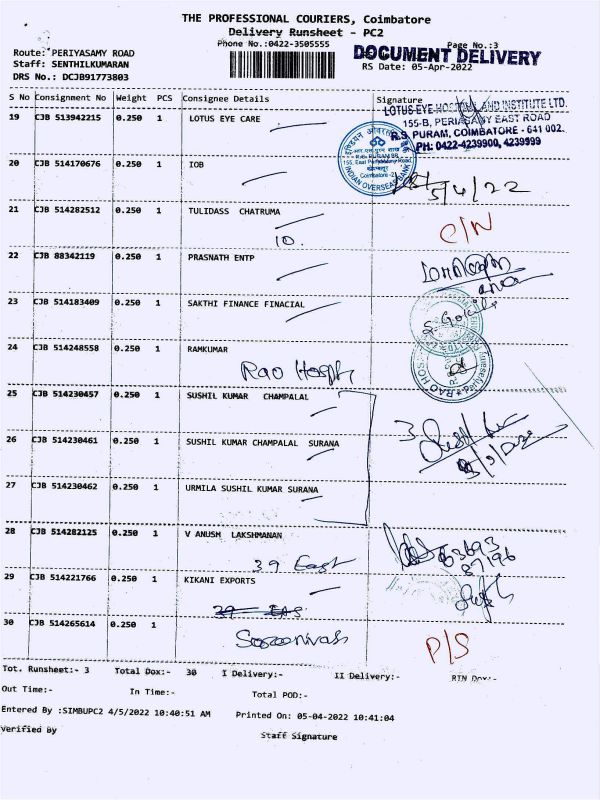 THE PROFESSIONAL COURIERS, Coimbatore
Delivery Runsheet - PC2
Phone No.:0422-3505555
Page No.:3
DOCUMENT DELIVERY
Route: PERIYASAMY ROAD
Staff: SENTHILKUMARAN
RS Date: 05-Apr-2022
DRS No.: DCJB91773803
S No Consignment No Weight PCS Consignee Details Signature
19 CJB 513942215 0.250 1 LOTUS EYE CARE
LOTUS EYE HOSPITAL AND INSTITUTE LTD.
155-B, PERIASAMY EAST ROAD
R.S. PURAM, COIMBATORE - 641 002.
PH: 0422-4239900, 4239999
20 CJB 514170676 0.250 1 IOB
INDIAN OVERSEAS BANK
5/4/22
21 CJB 514282512 0.250 1 TULIDASS CHATRUMA
10.
C/N
22 CJB 88342119 0.250 1 PRASNATH ENTP
23 CJB 514183409 0.250 1 SAKTHI FINANCE FINACIAL
24 CJB 514248558 0.250 1 RAMKUMAR
Rao Hosptl
25 CJB 514230457 0.250 1 SUSHIL KUMAR CHAMPALAL
3
26 CJB 514230461 0.250 1 SUSHIL KUMAR CHAMPALAL SURANA
27 CJB 514230462 0.250 1 URMILA SUSHIL KUMAR SURANA
28 CJB 514282125 0.250 1 V ANUSH LAKSHMANAN
39 East
63693
87196
29 CJB 514221766 0.250 1 KIKANI EXPORTS
30 CJB 514265614 0.250 1
P/S
Tot. Runsheet:- 3 Total Dox:- 30 I Delivery:- II Delivery:- RTN Dox:-
Out Time:- In Time:- Total POD:-
Entered By :SIMBUPC2 4/5/2022 10:40:51 AM Printed On: 05-04-2022 10:41:04
Verified By Staff Signature